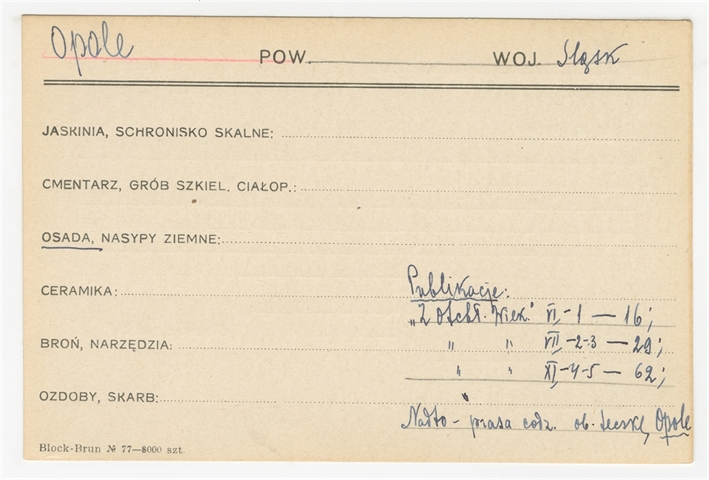 Opole POW. WOJ. Śląsk
JASKINIA, SCHRONISKO SKALNE:
CMENTARZ, GRÓB SZKIEL. CIAŁOP.:
OSADA, NASYPY ZIEMNE:
CERAMIKA: Publikacje:
„Z otchł. Wiek." VI-1 — 16;
BROŃ, NARZĘDZIA: " " VII-2-3 — 29;
" " XI-4-5 — 62;
OZDOBY, SKARB:
Nadto - prasa codz. ob. teczkę Opole
Block-Brun № 77—8000 szt.